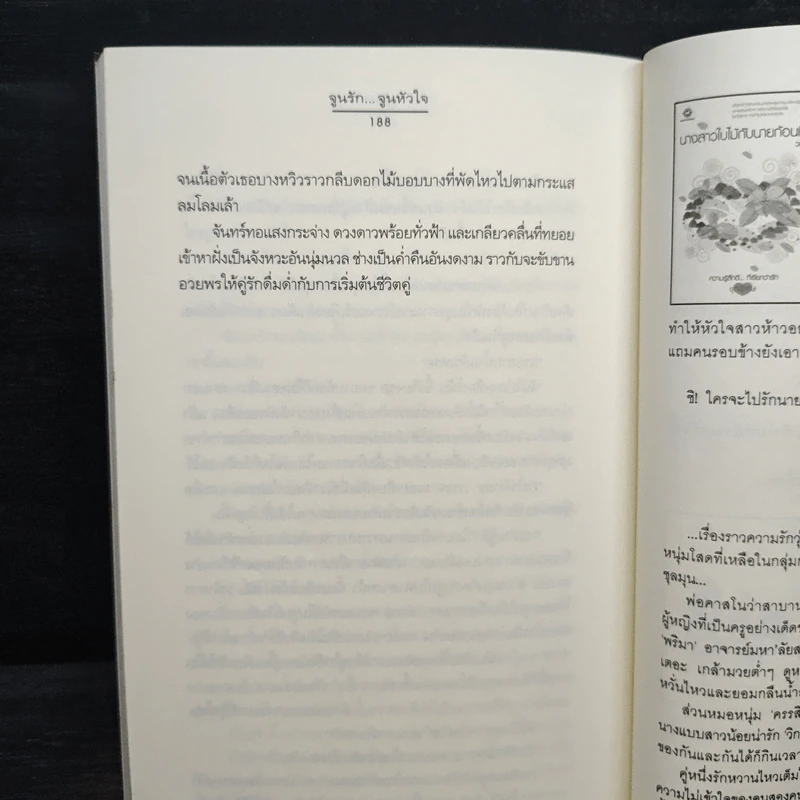 จูนรัก... จูนหัวใจ
188
จนเนื้อตัวเธอบางหวิวราวกลีบดอกไม้บอบบางที่พัดไหวไปตามกระแส
ลมโลมเล้า
จันทร์ทอแสงกระจ่าง ดวงดาวพร้อยทั่วฟ้า และเกลียวคลื่นที่ทยอย
เข้าหาฝั่งเป็นจังหวะอันนุ่มนวล ช่างเป็นค่ำคืนอันงดงาม ราวกับจะขับขาน
อวยพรให้คู่รักดื่มด่ำกับการเริ่มต้นชีวิตคู่
นางสาวใบไม้กับนายก้อน
ความรู้สึกดี... ที่เรียกว่ารัก
ทำให้หัวใจสาวห้าว
แถมคนรอบข้างยังเอา
ชิ! ใครจะไปรักนาย
...เรื่องราวความรัก
หนุ่มโสดที่เหลือในกลุ่ม
ชุลมุน...
พ่อคาสโนว่าสาบาน
ผู้หญิงที่เป็นครูอย่างเด็ด
'พริมา' อาจารย์มหา'ลัย
เตอะ เกล้ามวยต่ำๆ ดู
หวั่นไหวและยอมกลืนน้ำ
ส่วนหมอหนุ่ม 'ครรส
นางแบบสาวน้อยน่ารัก 'วิก
ของกันและกันได้ก็กินเวลา
คู่หนึ่งรักหวานไหวเต็ม
ความไม่เข้าใจของคนสองคน